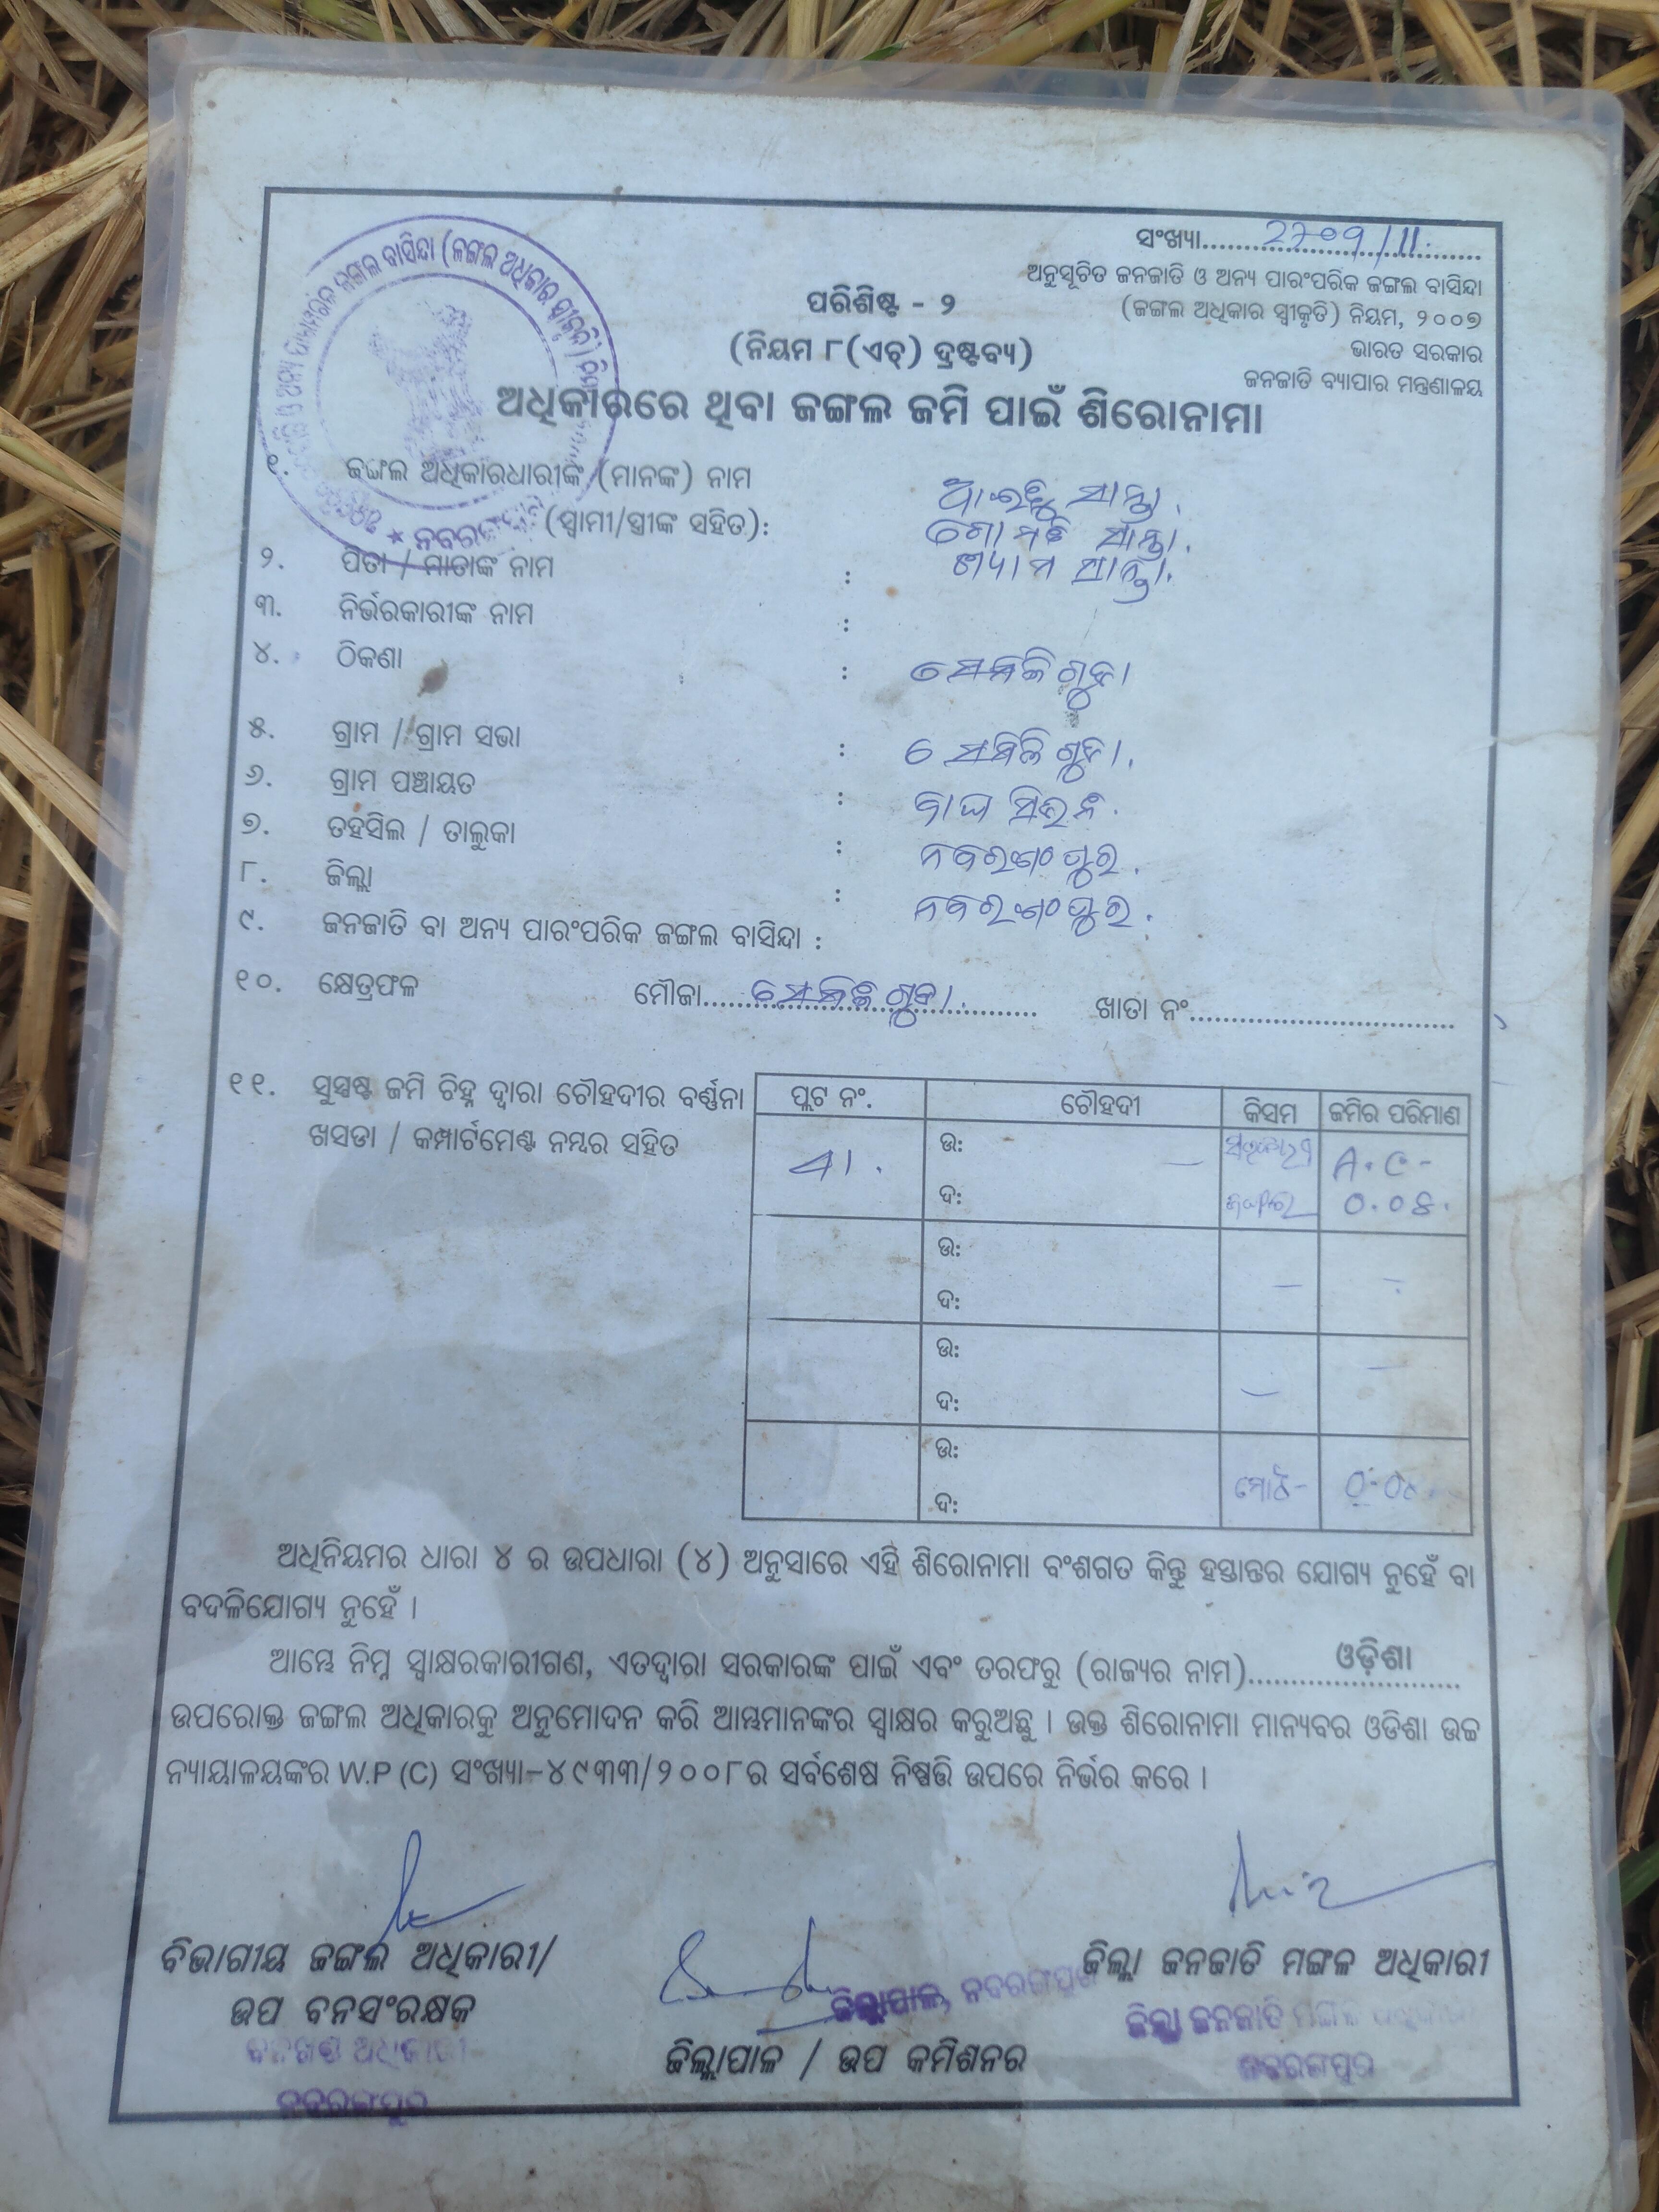 ସଂଖ୍ୟା..........2709/11..........
ଅନୁସୂଚିତ ଜନଜାତି ଓ ଅନ୍ୟ ପାରଂପରିକ ଜଙ୍ଗଲ ବାସିନ୍ଦା
(ଜଙ୍ଗଲ ଅଧିକାର ସ୍ୱୀକୃତି) ନିୟମ, ୨୦୦୭
ଭାରତ ସରକାର
ଜନଜାତି ବ୍ୟାପାର ମନ୍ତ୍ରଣାଳୟ
ପରିଶିଷ୍ଟ - ୨
(ନିୟମ ୮(ଏଚ୍) ଦ୍ରଷ୍ଟବ୍ୟ)
ଅଧିକାରରେ ଥିବା ଜଙ୍ଗଲ ଜମି ପାଇଁ ଶିରୋନାମା
୧. ଜଙ୍ଗଲ ଅଧିକାରଧାରୀଙ୍କ (ମାନଙ୍କ) ନାମ
(ସ୍ୱାମୀ/ସ୍ତ୍ରୀଙ୍କ ସହିତ): ସାନ୍ତା
ସାନ୍ତା.
୨. ପିତା / ମାତାଙ୍କ ନାମ : ସାନ୍ତା.
୩. ନିର୍ଭରକାରୀଙ୍କ ନାମ :
୪. ଠିକଣା :
୫. ଗ୍ରାମ / ଗ୍ରାମ ସଭା :
୬. ଗ୍ରାମ ପଞ୍ଚାୟତ :
୭. ତହସିଲ / ତାଲୁକା : ନବରଂଗପୁର.
୮. ଜିଲ୍ଲା : ନବରଂଗପୁର.
୯. ଜନଜାତି ବା ଅନ୍ୟ ପାରଂପରିକ ଜଙ୍ଗଲ ବାସିନ୍ଦା :
୧୦. କ୍ଷେତ୍ରଫଳ ମୌଜା.................... ଖାତା ନଂ................................
୧୧. ସୁସ୍ପଷ୍ଟ ଜମି ଚିହ୍ନ ଦ୍ୱାରା ଚୌହଦୀର ବର୍ଣ୍ଣନା
ଖସଡା / କମ୍ପାର୍ଟମେଣ୍ଟ ନମ୍ବର ସହିତ
ପ୍ଲଟ ନଂ. ଚୌହଦୀ କିସମ ଜମିର ପରିମାଣ
ଉ: A.C-
ଦ: ଜଙ୍ଗଲ
ଉ:
ଦ:
ଉ:
ଦ:
ଉ:
ଦ: ମୋଟ-
ଅଧିନିୟମର ଧାରା ୪ ର ଉପଧାରା (୪) ଅନୁସାରେ ଏହି ଶିରୋନାମା ବଂଶଗତ କିନ୍ତୁ ହସ୍ତାନ୍ତର ଯୋଗ୍ୟ ନୁହେଁ ବା
ବଦଳିଯୋଗ୍ୟ ନୁହେଁ ।
ଆମ୍ଭେ ନିମ୍ନ ସ୍ୱାକ୍ଷରକାରୀଗଣ, ଏତଦ୍ୱାରା ସରକାରଙ୍କ ପାଇଁ ଏବଂ ତରଫରୁ (ରାଜ୍ୟର ନାମ)..........ଓଡ଼ିଶା..........
ଉପରୋକ୍ତ ଜଙ୍ଗଲ ଅଧିକାରକୁ ଅନୁମୋଦନ କରି ଆମ୍ଭମାନଙ୍କର ସ୍ୱାକ୍ଷର କରୁଅଛୁ । ଉକ୍ତ ଶିରୋନାମା ମାନ୍ୟବର ଓଡିଶା ଉଚ୍ଚ
ନ୍ୟାୟାଳୟଙ୍କର W.P (C) ସଂଖ୍ୟା-୪୯୩୩/୨୦୦୮ର ସର୍ବଶେଷ ନିଷ୍ପତ୍ତି ଉପରେ ନିର୍ଭର କରେ ।
ବିଭାଗୀୟ ଜଙ୍ଗଲ ଅଧିକାରୀ/
ଉପ ବନସଂରକ୍ଷକ
ବନଖଣ୍ଡ ଅଧିକାରୀ
ନବରଙ୍ଗପୁର
ଜିଲ୍ଲାପାଳ, ନବରଙ୍ଗପୁର
ଜିଲ୍ଲାପାଳ / ଉପ କମିଶନର
ଜିଲ୍ଲା ଜନଜାତି ମଙ୍ଗଳ ଅଧିକାରୀ
ଜିଲ୍ଲା ଜନଜାତି ମଙ୍ଗଳ
ନବରଙ୍ଗପୁର